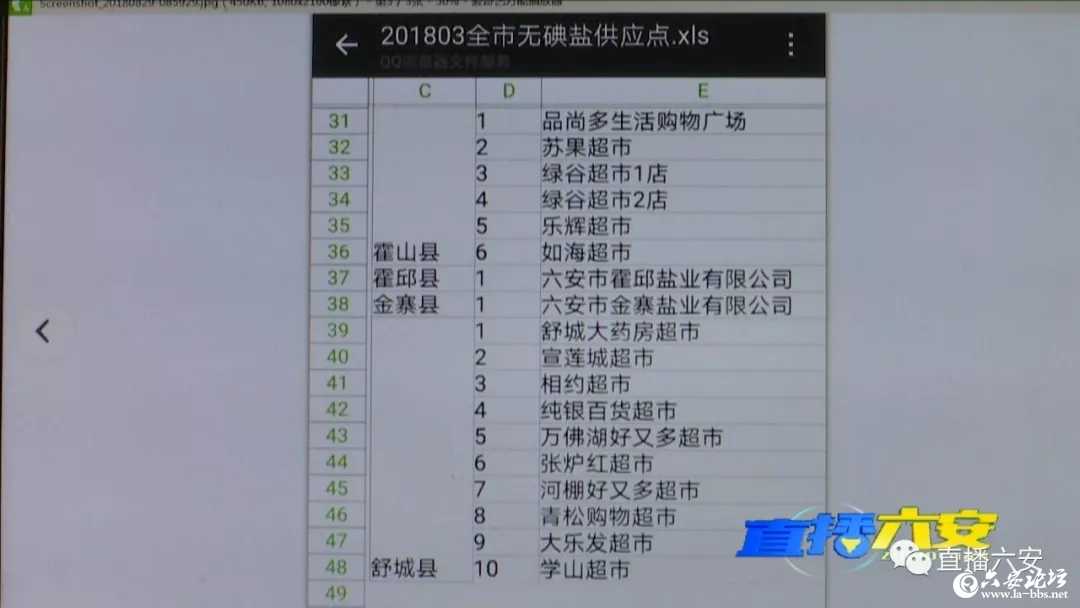 Screenshot_20180829-085929.jpg ( 450KB, 1080x2160像素 )
201803全市无碘盐供应点.xls
QQ浏览器文件服务
C D E
31 1 品尚多生活购物广场
32 2 苏果超市
33 3 绿谷超市1店
34 4 绿谷超市2店
35 5 乐辉超市
36 霍山县 6 如海超市
37 霍邱县 1 六安市霍邱盐业有限公司
38 金寨县 1 六安市金寨盐业有限公司
39 1 舒城大药房超市
40 2 宣莲城超市
41 3 相约超市
42 4 纯银百货超市
43 5 万佛湖好又多超市
44 6 张炉红超市
45 7 河棚好又多超市
46 8 青松购物超市
47 9 大乐发超市
48 舒城县 10 学山超市
49
直播六安
直播六安
六安论坛
www.la-bbs.net